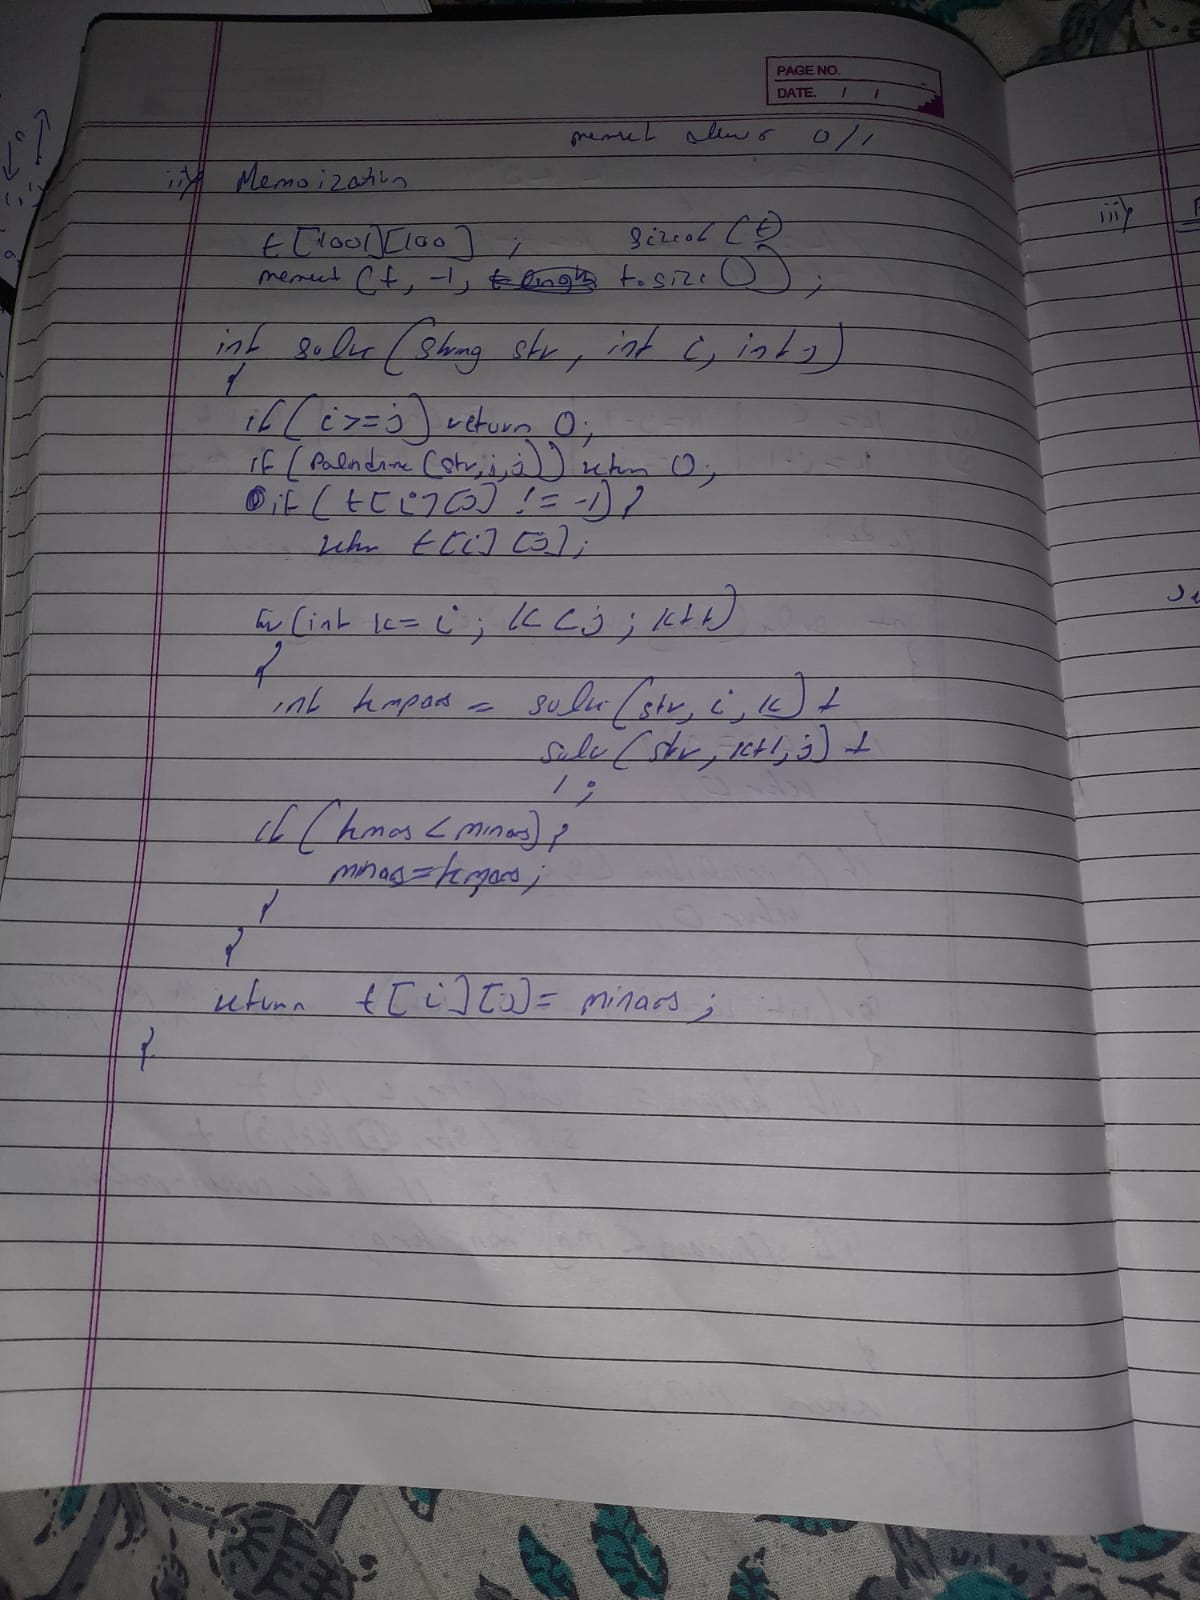 PAGE NO.
DATE. / /
memset 0/1
ii) Memoization
t[1001][100] ; sizeof (t)
memset (t, -1, t.size ());
int solve (string str, int i, int j)
{
if (i>=j) return 0;
if (Palindrome (str, i, j)) return 0;
if (t[i][j] != -1) {
return t[i][j];
for (int k= i ; k<j ; k++)
{
int tempans = solve (str, i, k) +
solve (str, k+1, j) +
1 ;
if (tempans < minans) {
minans=tempans;
}
}
return t[i][j]= minans ;
}
iii)